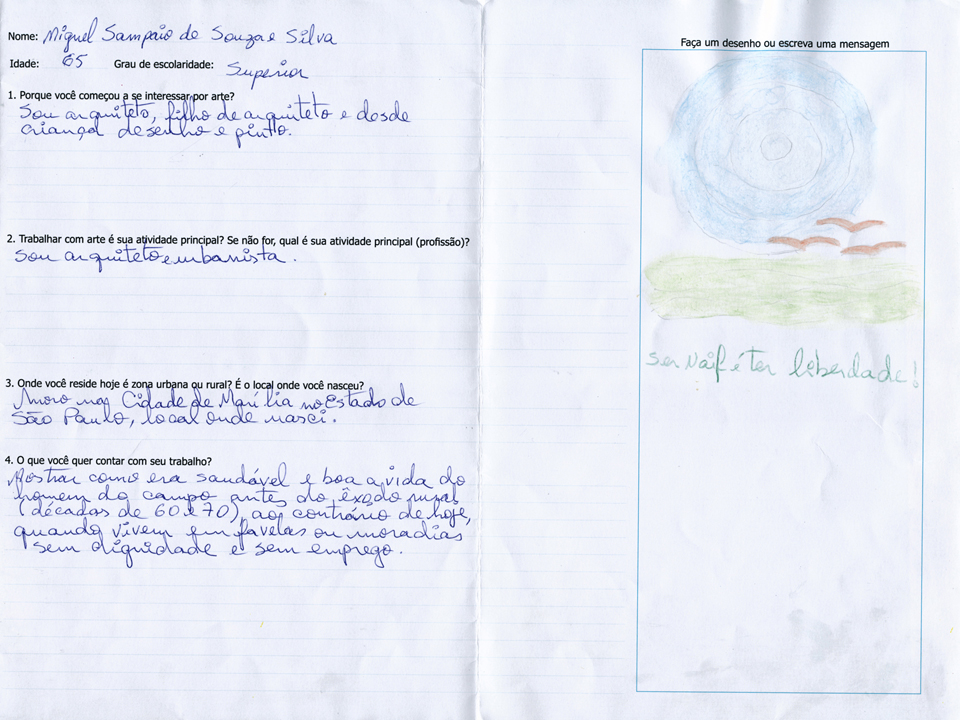 Nome: Miguel Sampaio de Souza e Silva
Idade: 65 Grau de escolaridade: Superior
1. Porque você começou a se interessar por arte?
Sou arquiteto, filho de arquiteto e desde
criança desenho e pinto.
2. Trabalhar com arte é sua atividade principal? Se não for, qual é sua atividade principal (profissão)?
Sou arquiteto e urbanista.
3. Onde você reside hoje é zona urbana ou rural? É o local onde você nasceu?
Moro na Cidade de Marília no Estado de
São Paulo, local onde nasci.
4. O que você quer contar com seu trabalho?
Mostrar como era saudável e boa a vida do
homem do campo antes do êxodo rural
(décadas de 60 e 70), ao contrário de hoje,
quando vivem em favelas ou moradias
sem dignidade e sem emprego.
Faça um desenho ou escreva uma mensagem
Ser Naif é ter liberdade!